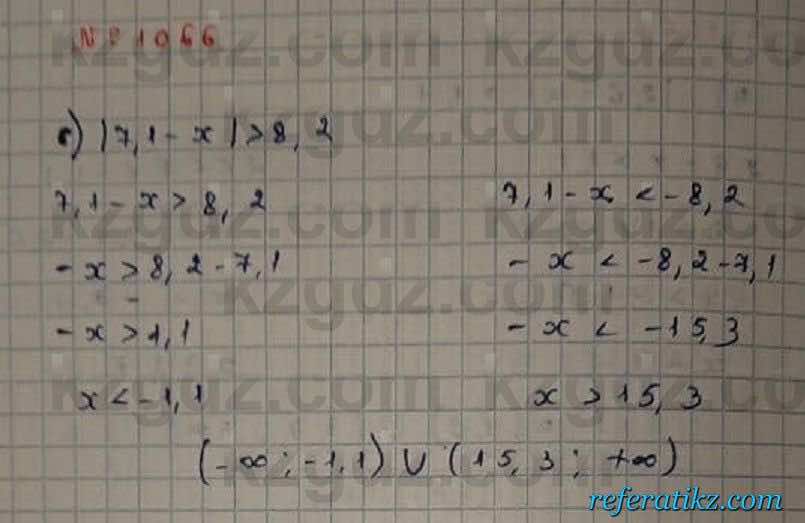 № 1066
б) |7,1 - x| > 8,2
7,1 - x > 8,2
- x > 8,2 - 7,1
- x > 1,1
x < -1,1
7,1 - x < -8,2
- x < -8,2 - 7,1
- x < -15,3
x > 15,3
(-∞; -1,1) ∪ (15,3; +∞)
kzgdz.com
referatikz.com